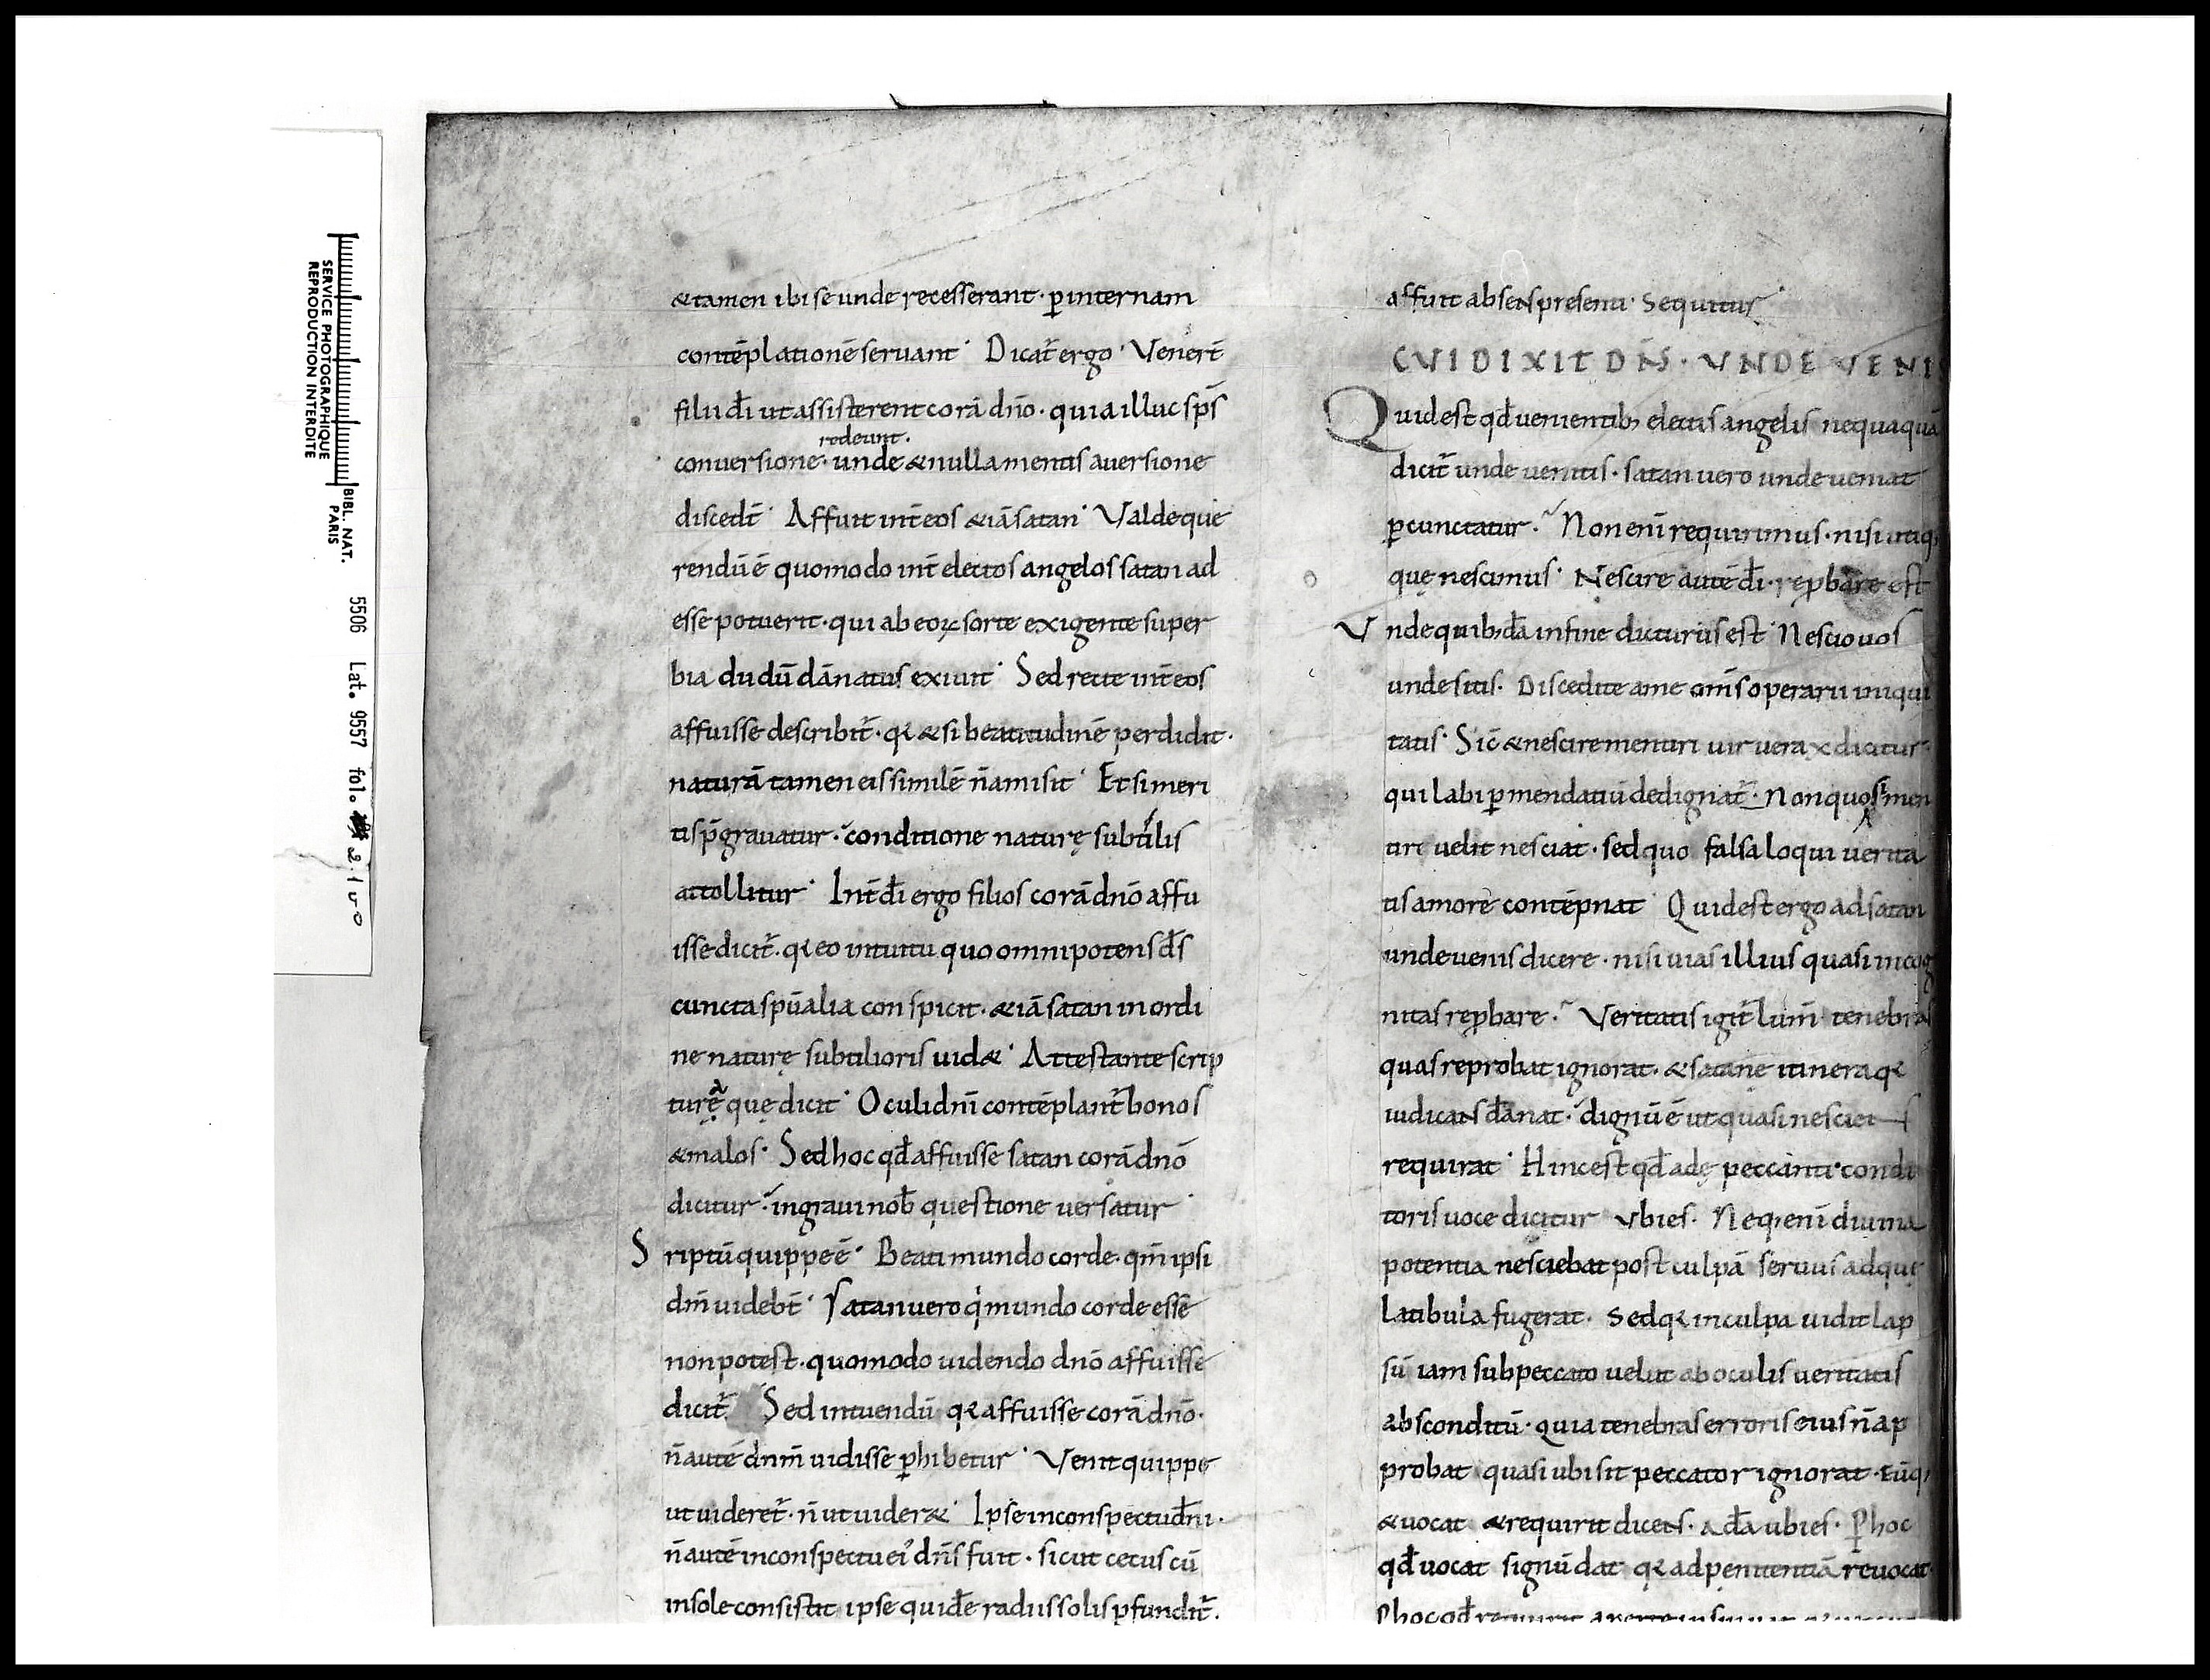 SERVICE PHOTOGRAPHIQUE
REPRODUCTION INTERDITE
BIBL. NAT.
PARIS
5506 Lat. 9557 fol.
&tamen ibi se unde recesserant · p̲internam
contēplationē seruant · Dicat̄ ergo · Venert̄
filii dī ut assisterent corā dn̄o · quia illuc sp̄s
redeunt.
conuersione · unde & nulla mentis auersione
discedt̄ · Affuit int̄ eos & iā satan · Valde que
rendū ē quomodo int̄ electos angelos satan ad
esse potuerit · qui ab eoꝝ sorte exigente super
bia dudū dānatus exiuit · Sed recte int̄ eos
affuisse describit̄ · qꝛ & si beatitudinē perdidit ·
naturā tamen eis similē n̄ amisit · Et si meri
tis p̄grauatur · conditione naturę subtilis
attollitur · Int̄ dī ergo filios corā dn̄o affu
isse dicit̄ · qꝛ eo intuitu quo omnipotens ds̄
cuncta spūalia conspicit · & iā satan in ordi
ne naturę subtilioris uid& · Attestante scrip
turę que dicit · Oculi dn̄i contēplant̄ bonos
& malos · Sed hoc qđ affuisse satan corā dn̄o
dicitur · in graui nob̄ questione versatur ·
Scriptū quippe ē · Beati mundo corde · qm̄ ipsi
dm̄ uidebt̄ · Satan uero q̇ mundo corde esse
non potest · quomodo uidendo dn̄o affuisse
dicit̄ Sed intuendū qꝛ affuisse corā dn̄o ·
n̄ autē dnm̄ uidisse p̲hibetur · Venit quippe
ut uideret̄ · n̄ ut uider& · Ipse in conspectu dn̄i ·
n̄ autē in conspectu ei᾿ dn̄s fuit · sicut cecus cū
in sole consistit ipse quidē radiis solis p̲fundit̄ ·
affuit absens presenti · Sequitur
CVI DIXIT DN̄S · VNDE VENIS
Quid est qđ uenientib; electis angelis nequaquā
dicit̄ unde uenitis · satan uero unde ueniat
p̲cunctatur · Non enī requirimus · nisi utiq;
quę nescimus · Nescire autē dī · rep̲bare est
Vnde quib;dā in fine dicturus est · Nescio uos
unde sitis · Discedite a me om̄s operarii iniqui
tatis · Sic̄ & nescire mentiri uir uerax dicitur ·
qui labi p̲ mendatiū dedignat̄ · Non quo si men
tiri uelit nesciat · sed quo falsa loqui uerita
tis amore contēpnat · Quid est ergo ad satan
unde uenis dicere · nisi uias illius quasi incog
nitas rep̲bare · Veritatis igit̄ lum̄ tenebras
quas reprobat ignorat · & satane itinera qꝛ
iudicans dānat · dignū ē ut quasi nesciens
requirat · Hinc est qđ adę peccanti condi
toris uoce dicitur Vbi es · Neq; enī diuina
potentia nesciebat post culpā seruus ad quę
latibula fugerat · Sed qꝛ in culpa uidit lap
sū iam sub peccato uelut ab oculis ueritatis
absconditū · quia tenebras erroris eius n̄ ap
probat quasi ubi sit peccator ignorat · Eūq;
& uocat & requirit dicens · Adā ubi es · P̲ hoc
qđ uocat signū dat qꝛ ad penitentiā reuocat ·
P̲ hoc qđ requirit